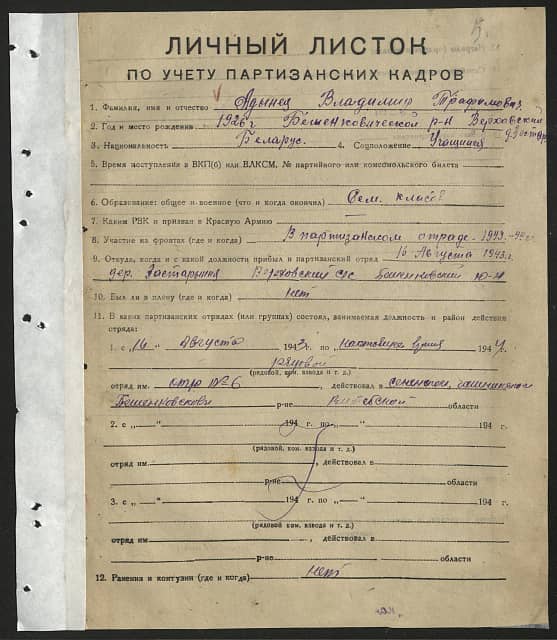 ЛИЧНЫЙ ЛИСТОК
ПО УЧЕТУ ПАРТИЗАНСКИХ КАДРОВ
1. Фамилия, имя и отчество Адынец Владимир Трафимович
2. Год и место рождения 1926 г Бешенковический р-н Верховский
3. Национальность Беларус. 4. Соцположение Учащийся
5. Время поступления в ВКП(б) или ВЛКСМ, № партийного или комсомольского билета
6. Образование: общее и военное (что и когда окончил) Сем. класов
7. Каким РВК и призван в Красную Армию
8. Участие на фронтах (где и когда) В партизанском отраде 1943-
9. Откуда, когда и с какой должности прибыл и партизанский отряд 16 Августа 1943 г.
дер. Застарынья Верховский с/с Бешенковский р-н
10. Был ли в плену (где и когда) нет
11. В каких партизанских отрядах (или группах) состоял, занимаемая должность и район действия
отряда:
1. с „16 " Августа 1943 г. по настоящее время 1944 г.
рядовой
(рядовой, ком. взвода и т. д.)
отряд им. отр №6, действовал в сененском,
Бешенковском р-не Витебской области
2. с „ " 194 г. по „ " 194 г.
(рядовой, ком. взвода и т. д.)
отряд им. , действовал в
р-не области
3. с „ " 194 г. по „ " 194 г.
(рядовой ком. взвода и т. д.)
отряд им. , действовал в
р-не области
12. Ранения и контузии (где и когда) нет